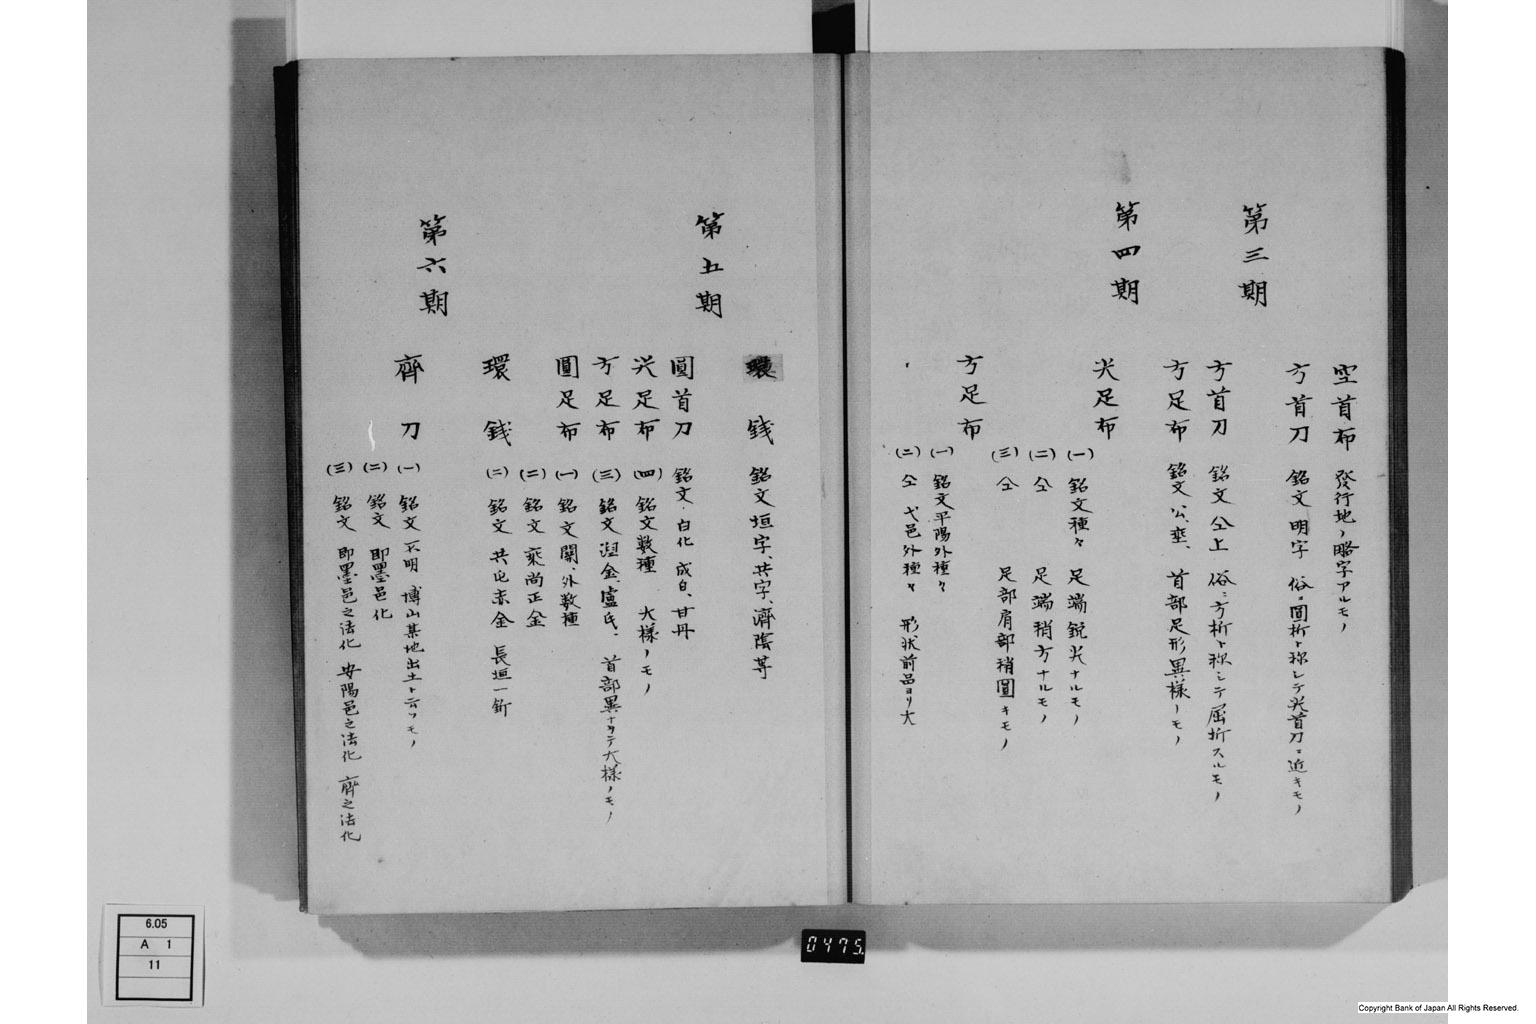 空首布　發行地ノ略字アルモノ
方首刀　銘文 明字　俗ニ圓折ト称シテ尖首刀ニ近キモノ
第三期
方首刀　銘文 仝上　俗ニ方折ト称シテ屈折スルモノ
方足布　銘文 公、垂、　首部足形異様ノモノ
第四期
尖足布　(一)　銘文種々　足端鋭尖ナルモノ
(二)　仝　足端稍方ナルモノ
(三)　仝　足部肩部稍圓キモノ
方足布　(一)　銘文平陽外種々
(二)　仝 弋邑外種々　形状前品ヨリ大
環錢　銘文 垣字、共字、濟陰等
第五期
圓首刀　銘文 白化 成白、甘丹
尖足布　(四)　銘文數種　大様ノモノ
方足布　(三)　銘文 涅金、盧氏、　首部異ナタテ大様ノモノ
圓足布　(一)　銘文 關、外数種
(二)　銘文 乘尚正金
環錢　(二)　銘文 共屯赤金　長垣一釿
第六期
齊刀　(一)　銘文 不明　博山某地出土ト云フモノ
(二)　銘文 即墨邑化
(三)　銘文 即墨邑之法化　安陽邑之法化　齊之法化
0475
6.05
A 1
11
Copyright Bank of Japan All Rights Reserved.